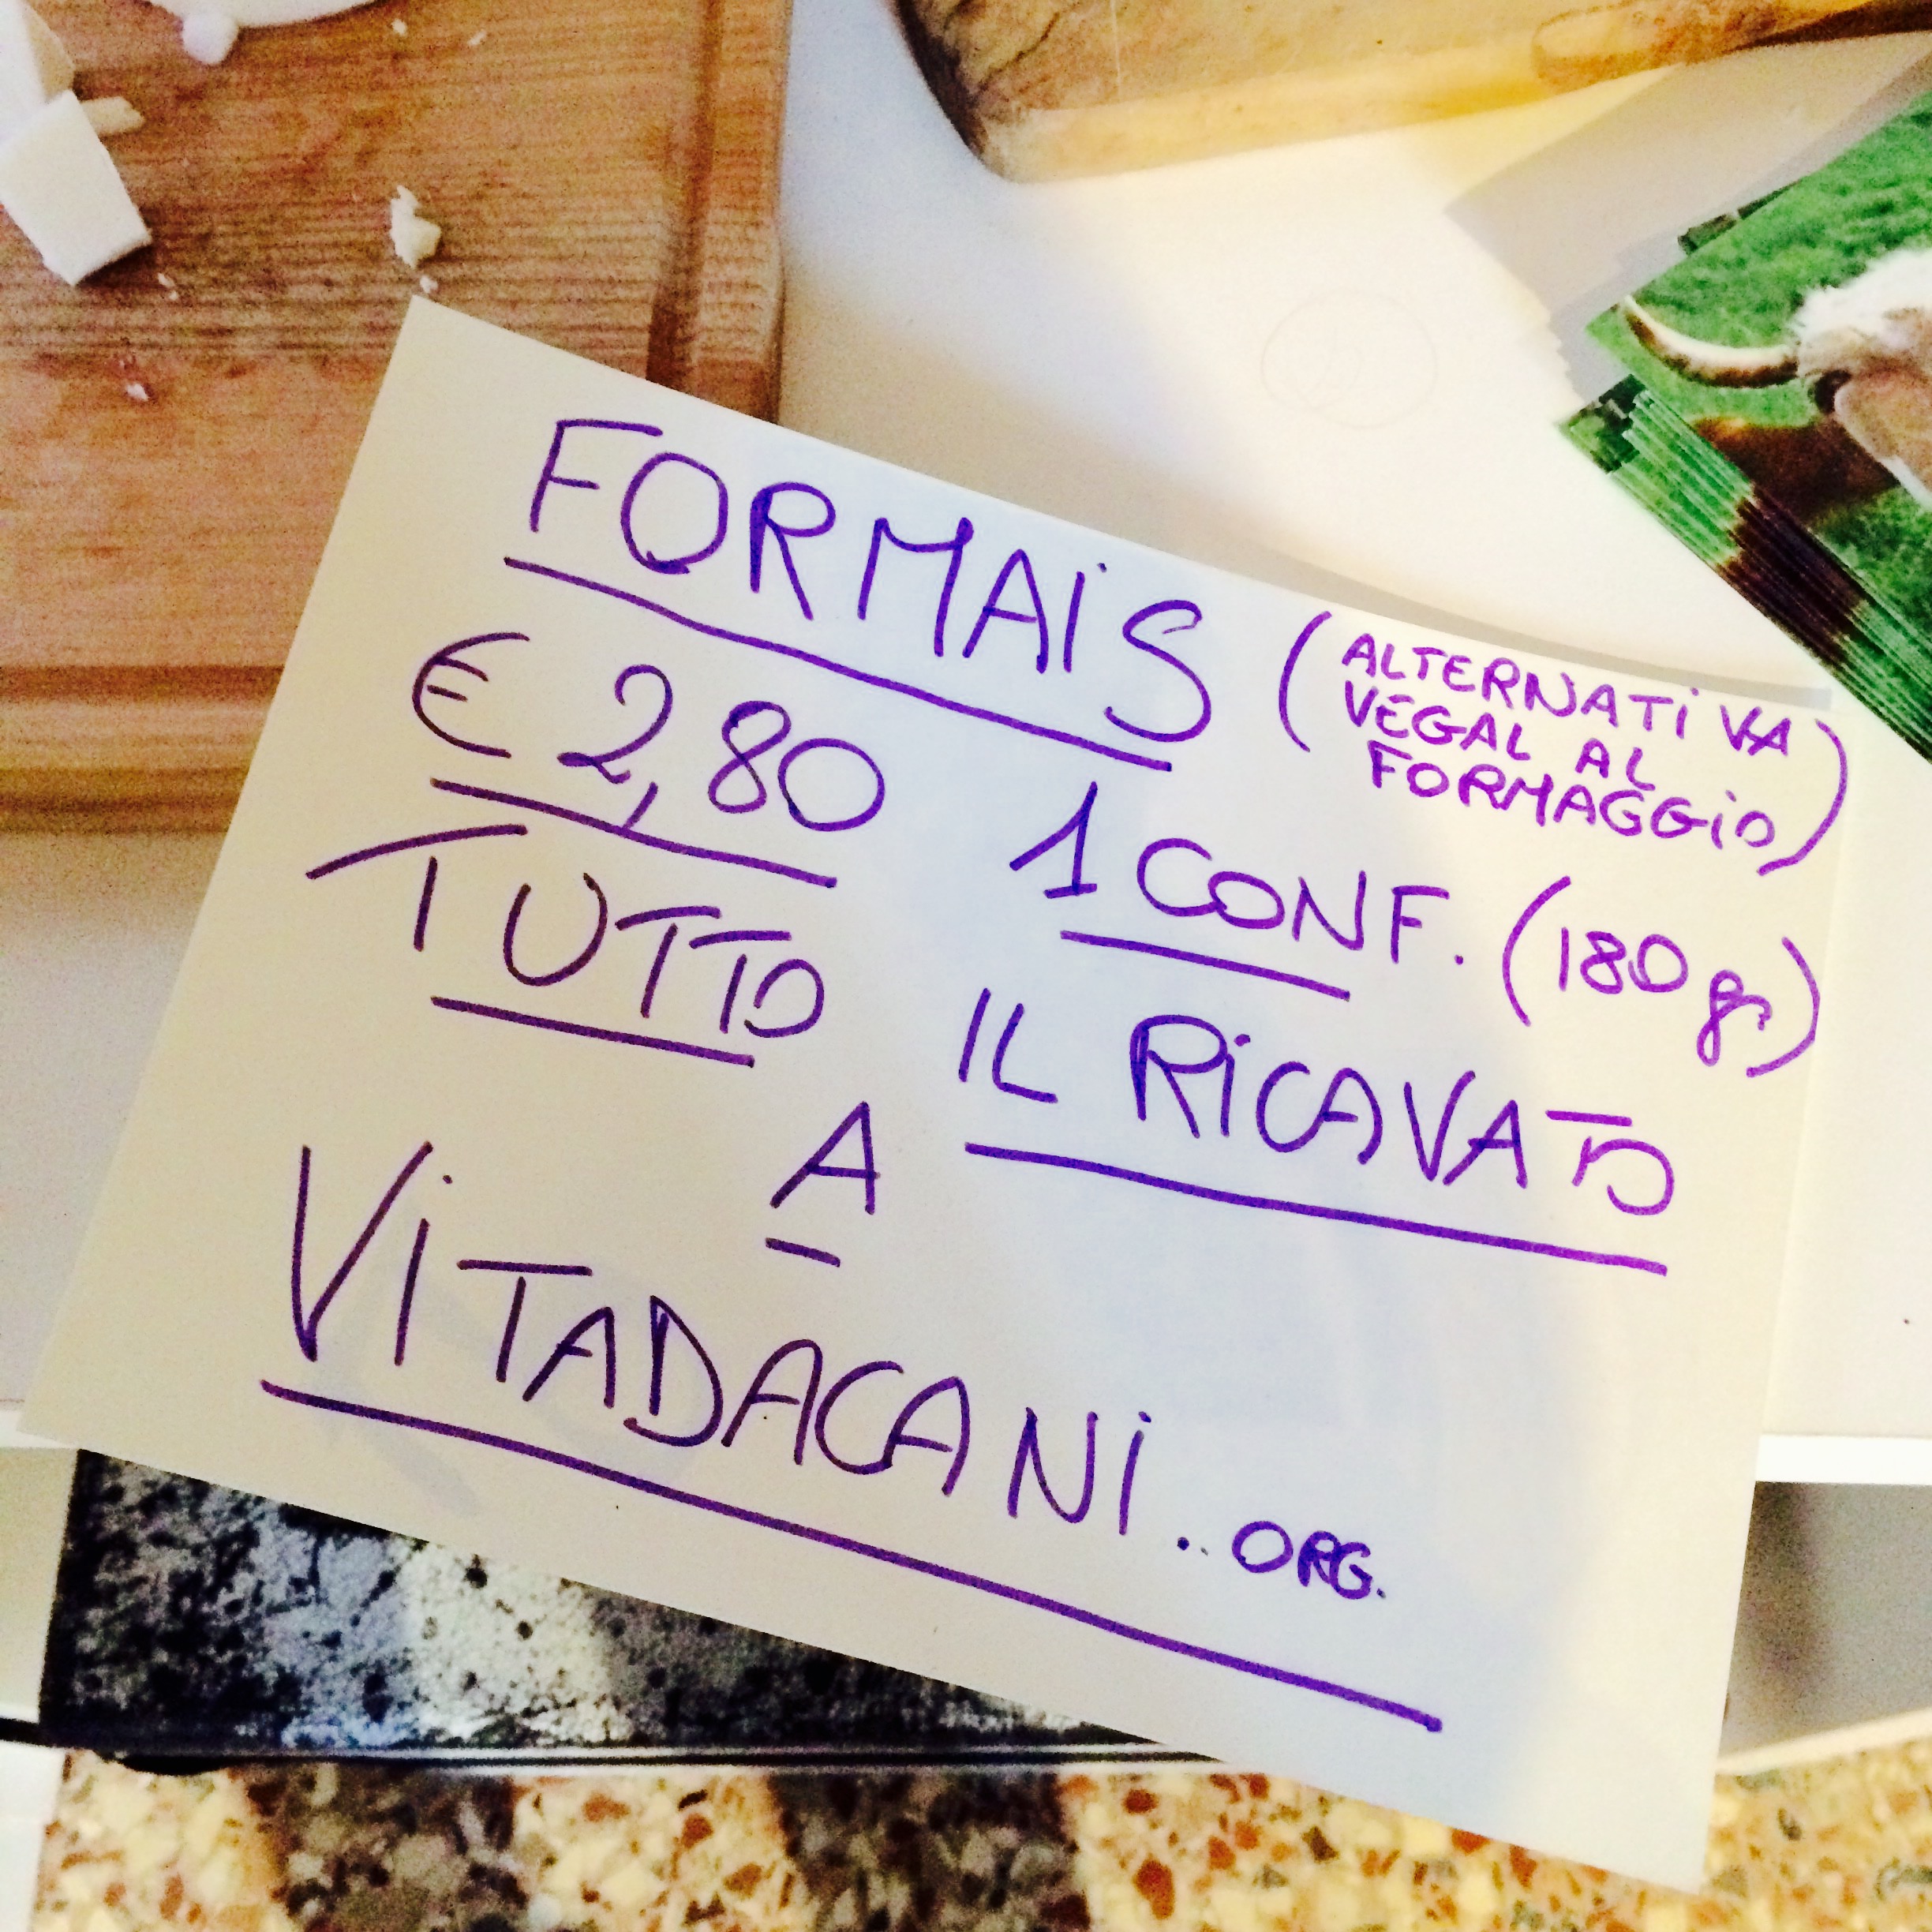 FORMAiS (ALTERNATiVA
VEGAL AL
FORMAGGiO)
€ 2,80 1 CONF. (180 gr)
TUTTO IL RiCAVATO
A
ViTADACANi..ORG.